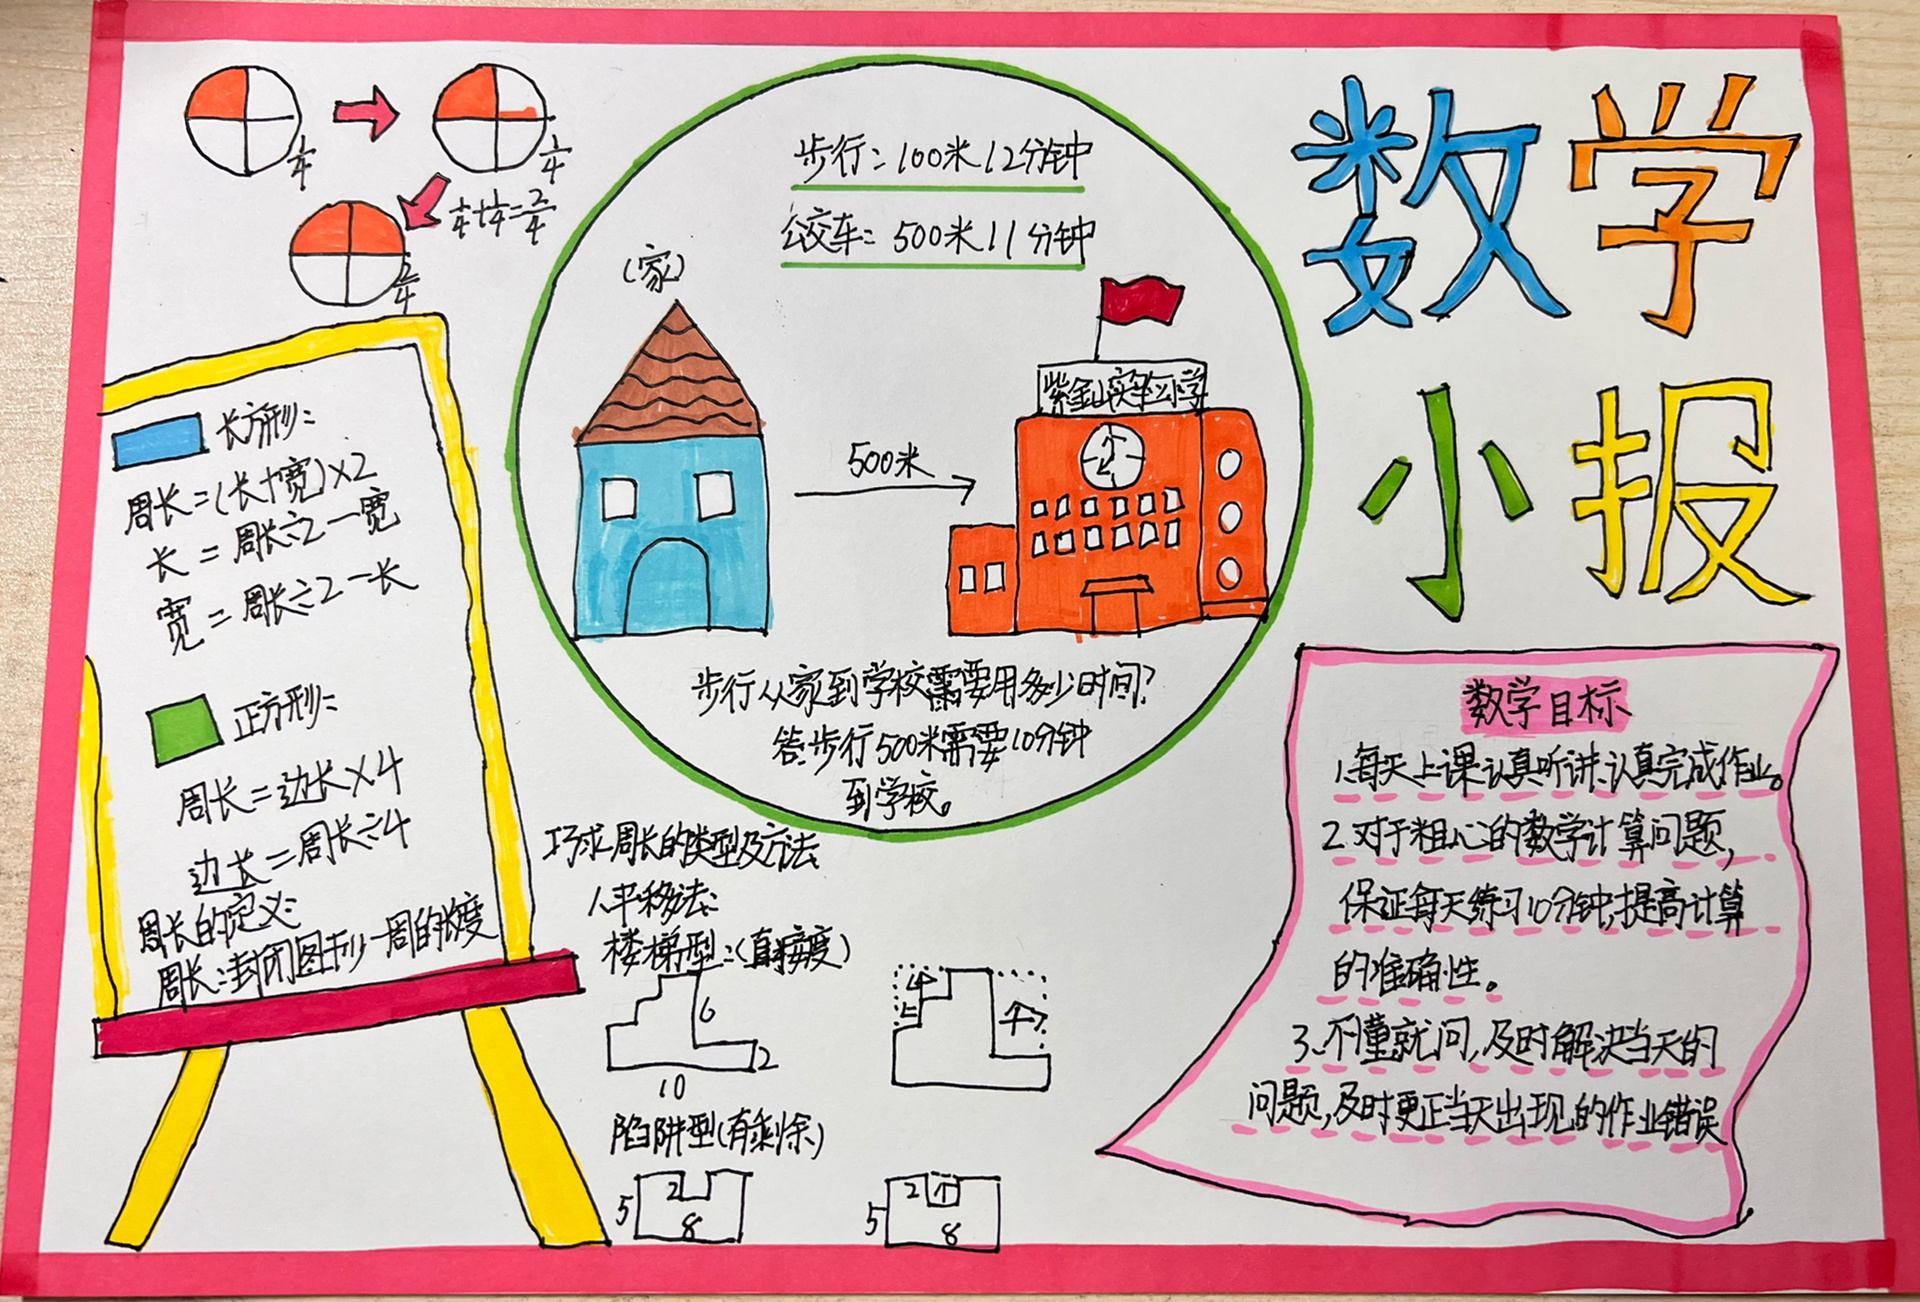 数学
小报
1/4
1/4
1/4+1/4=2/4
2/4
步行:100米12分钟
公交车:500米11分钟
(家)
紫金山实验小学
500米
步行从家到学校需要用多少时间?
答:步行500米需要10分钟
到学校。
长方形:
周长=(长+宽)×2
长=周长÷2-宽
宽=周长÷2-长
正方形:
周长=边长×4
边长=周长÷4
周长的定义:
周长:封闭图形一周的长度
巧求周长的类型及方法
1.平移法:
楼梯型:(直接度)
6
2
10
陷阱型(有剩余)
5
2
8
5
2
8
数学目标
1.每天上课认真听讲,认真完成作业。
2.对于粗心的数学计算问题,
保证每天练习10分钟,提高计算
的准确性。
3.不懂就问,及时解决当天的
问题,及时更正当天出现的作业错误